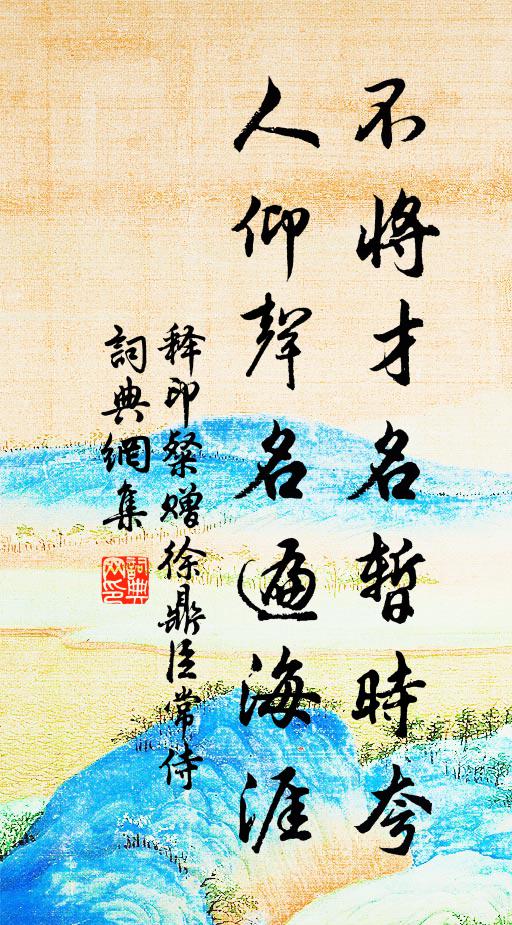 不將才名暫時夸
人仰聲名遍海涯
釋印粲贈徐鼎臣常侍
詞典網集
詞典網印